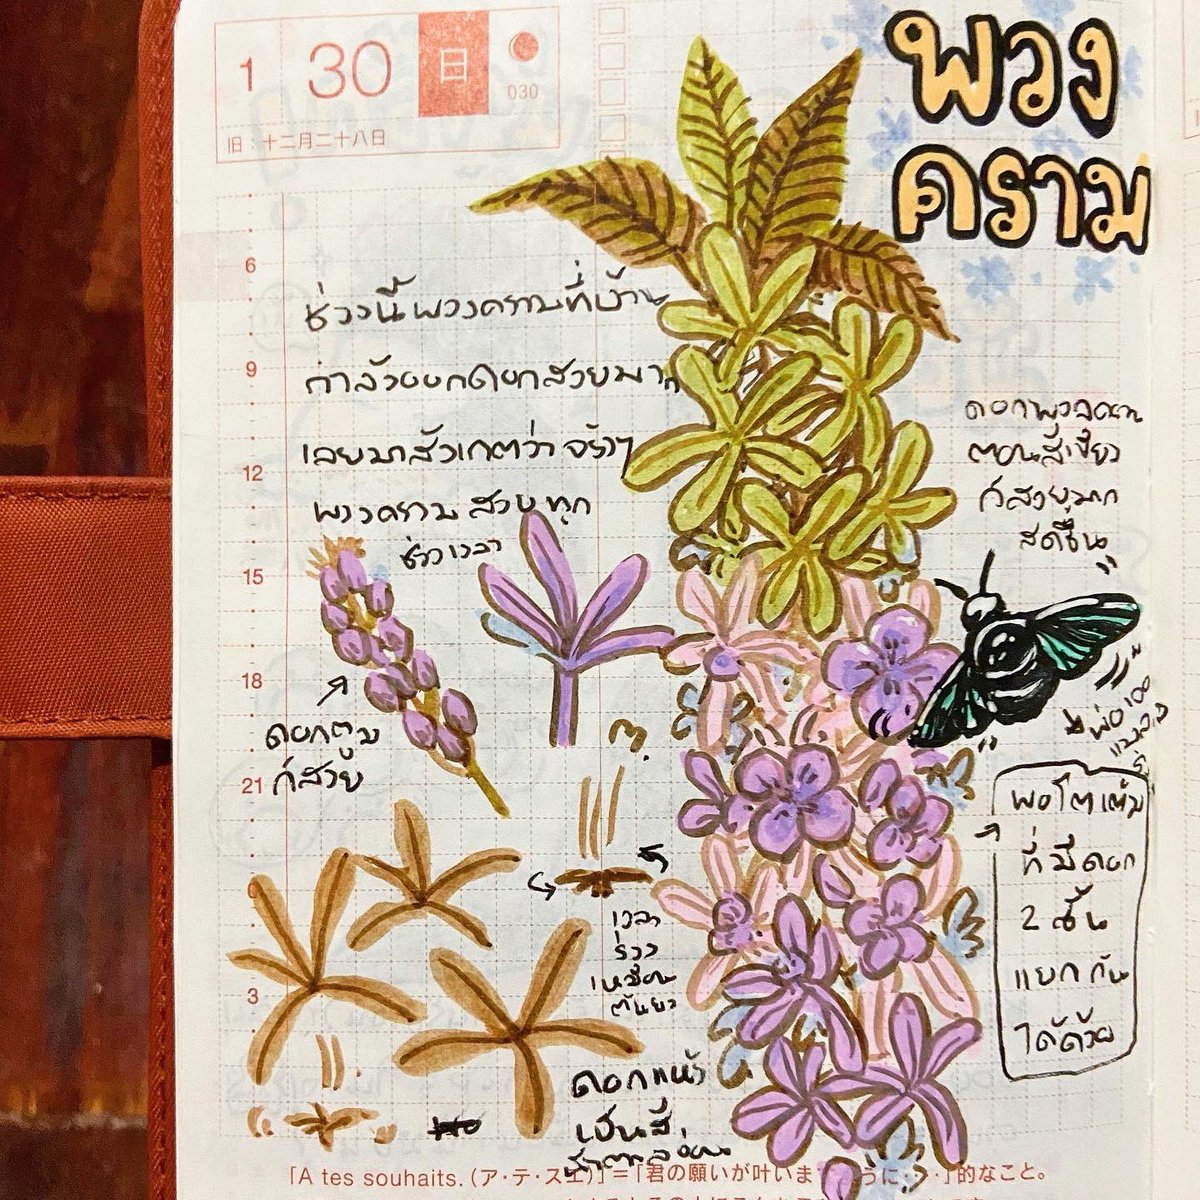 1 30 日
030
旧：十二月二十八日
พวง
คราม
6
9
12
15
18
21
0
3
ช่วงนี้พวงครามที่บ้าน
กำลังออกดอกสวยมาก
เลยมาสังเกตว่า จริงๆ
พวงคราม สวย ทุก
ช่วงเวลา
ดอกพวงคราม
ตอนสีเขียว
ก็สวยมาก
สดชื่น
ดอกตูม
ก็สวย
พอโตเต็ม
ที่ มีดอก
2 ชั้น
แยกกัน
ได้ด้วย
เวลา
ร่วง
เหมือน
ดอกแห้ง
เป็นสี
น้ำตาลอ่อน
「A tes souhaits. (ア・テ・スエ)」=「君の願いが叶いま
的なこと。